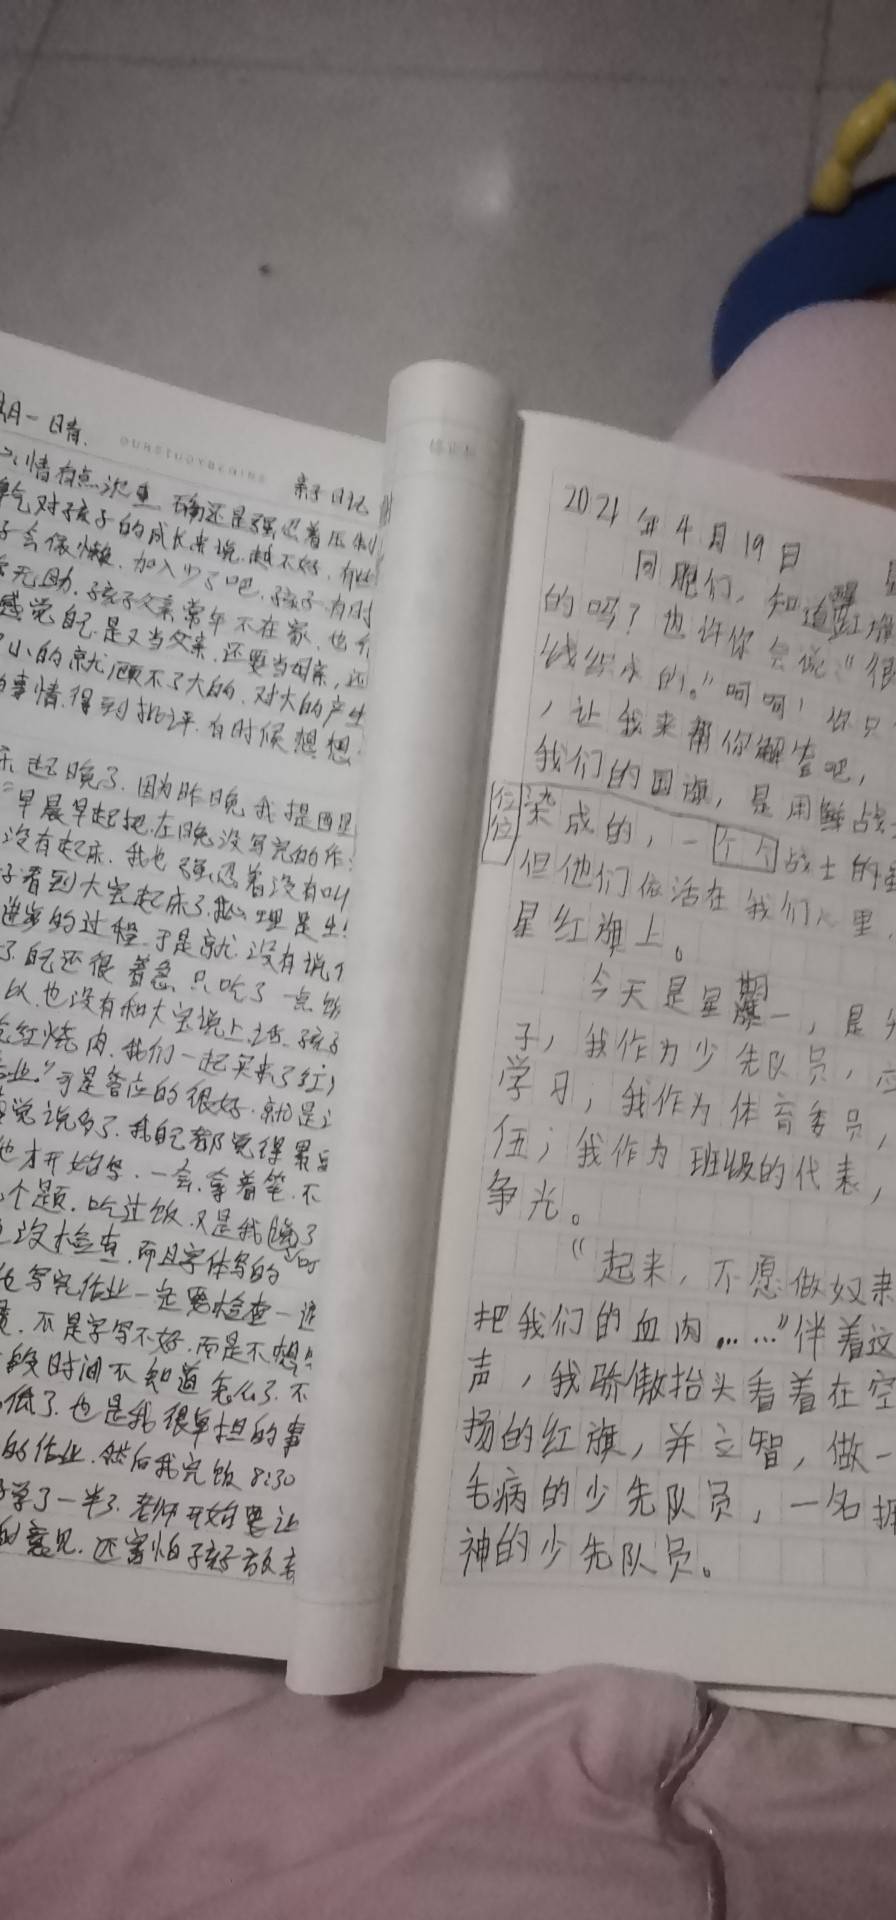 期一 晴.
亲子日记
心情有点沉重 确还是强忍着压制
对孩子的成长来说.越不好.有些
子会很懒.加入少了吧.孩子有时
无助.孩子父亲常年不在家.也
感觉自己.是又当父亲.还要当母亲,还
小的就顾不了大的.对大的产生
事情.得到批评.有时候想想
起晚了.因为昨晚我提
早晨早起把.在晚没写完的作
没有起床.我也强忍着没有叫
看到大宝起床了.
进步的过程.于是就.没有说
自己还很着急.只吃了一点饭
以也没有和大宝说上话.孩子
红烧肉.我们一起买来了红
业."可是答应的很好.就是
觉说多了.我自己都觉得累
他才开始写.一会.拿着笔.不
个题.吃过饭.又是我
没检查.而且字体写的
写完作业一定要检查一遍
不是字写不好.而是不想
段时间不知道怎么了.不
低了.也是我很单担的事
的作业.然后我完饭8:30
学了一半了.老师开始要让
的意见.还害怕孩子
2021年4月19日 星
同胞们,知道红旗
的吗?也许你会说:"很
线织成的。"呵呵!你只
,让我来帮你解答吧,
我们的国旗,是用鲜战士
位位
染成的,一个个战士的
但他们依活在我们心里,
星红旗上。
今天是星期一,是
子,我作为少先队员,应
学习,我作为体育委员,
伍;我作为班级的代表,
争光。
"起来,不愿做奴隶
把我们的血肉……"伴着这
声,我骄傲抬头看着在空
扬的红旗,并立智,做一
毛病的少先队员,一名拥
神的少先队员。